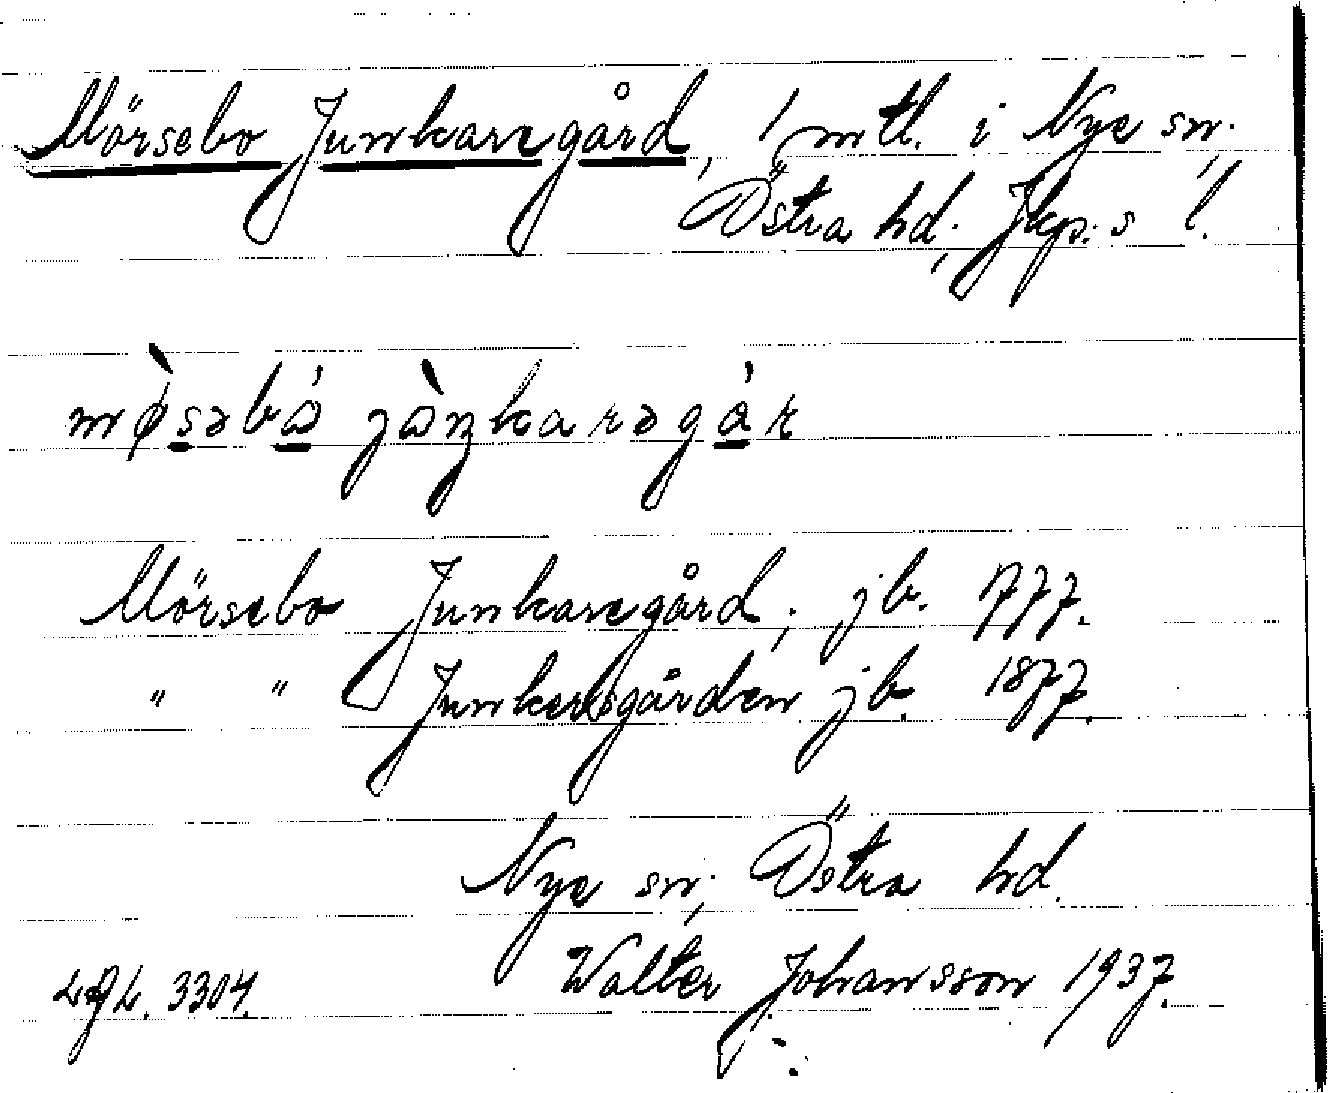 Mörsebo Junkaregård, 1 mtl. i Nye sn.,
Östra hd., Jkp:s l.
Mörsebo Junkaregård; jb. 1777.
" " Junkersgården jb. 1877.
Nye sn., Östra hd.
3304. Walter Johansson 1937.